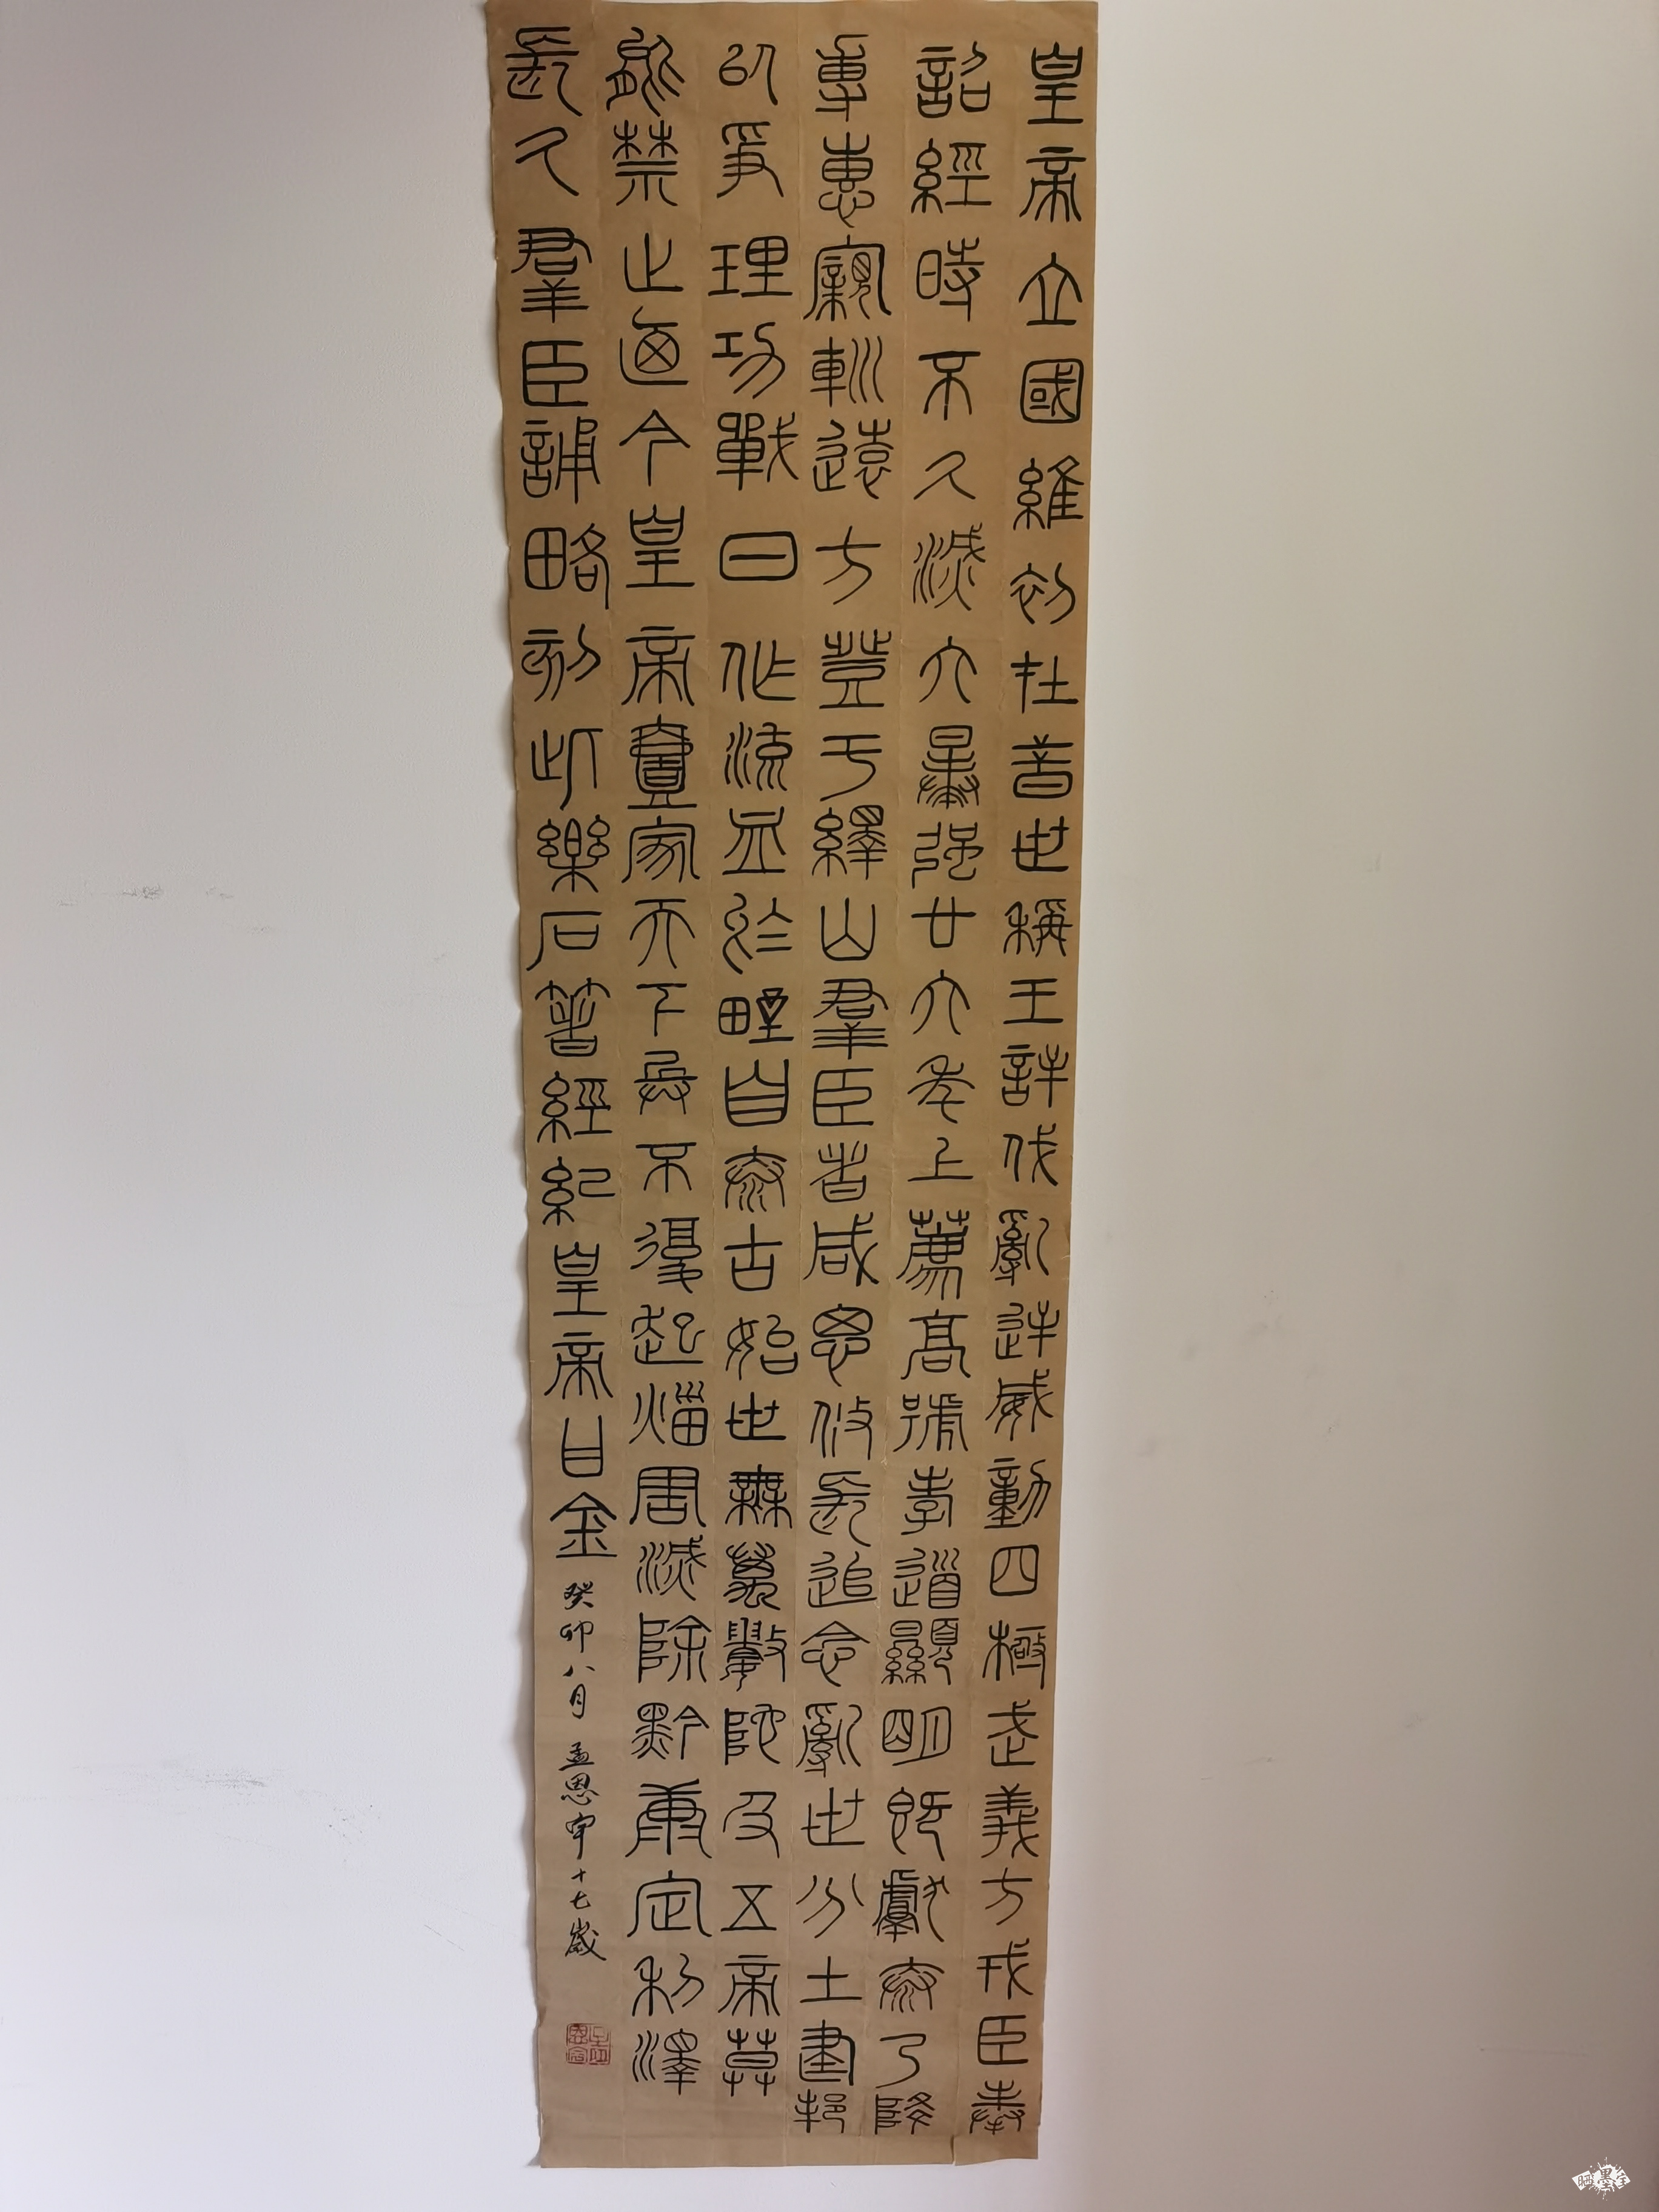 皇帝立國維初在昔世稱王討伐亂逆威動四極武義方戎臣奉
詔經時不久滅六暴强廿六年上薦高號孝道顯明既獻泰乃降
專惠寴巡遠方登于繹山羣臣者咸思攸長追念亂世分土建邦
以爭理功戰日作流血於野自泰古始世無萬數陀及五帝莫
能禁止迺今皇帝壹家天下兵不復起災害滅除黔康定利澤
長久羣臣誦略刻此樂石著經紀皇帝曰金
癸卯八月孟恩宇十七歲